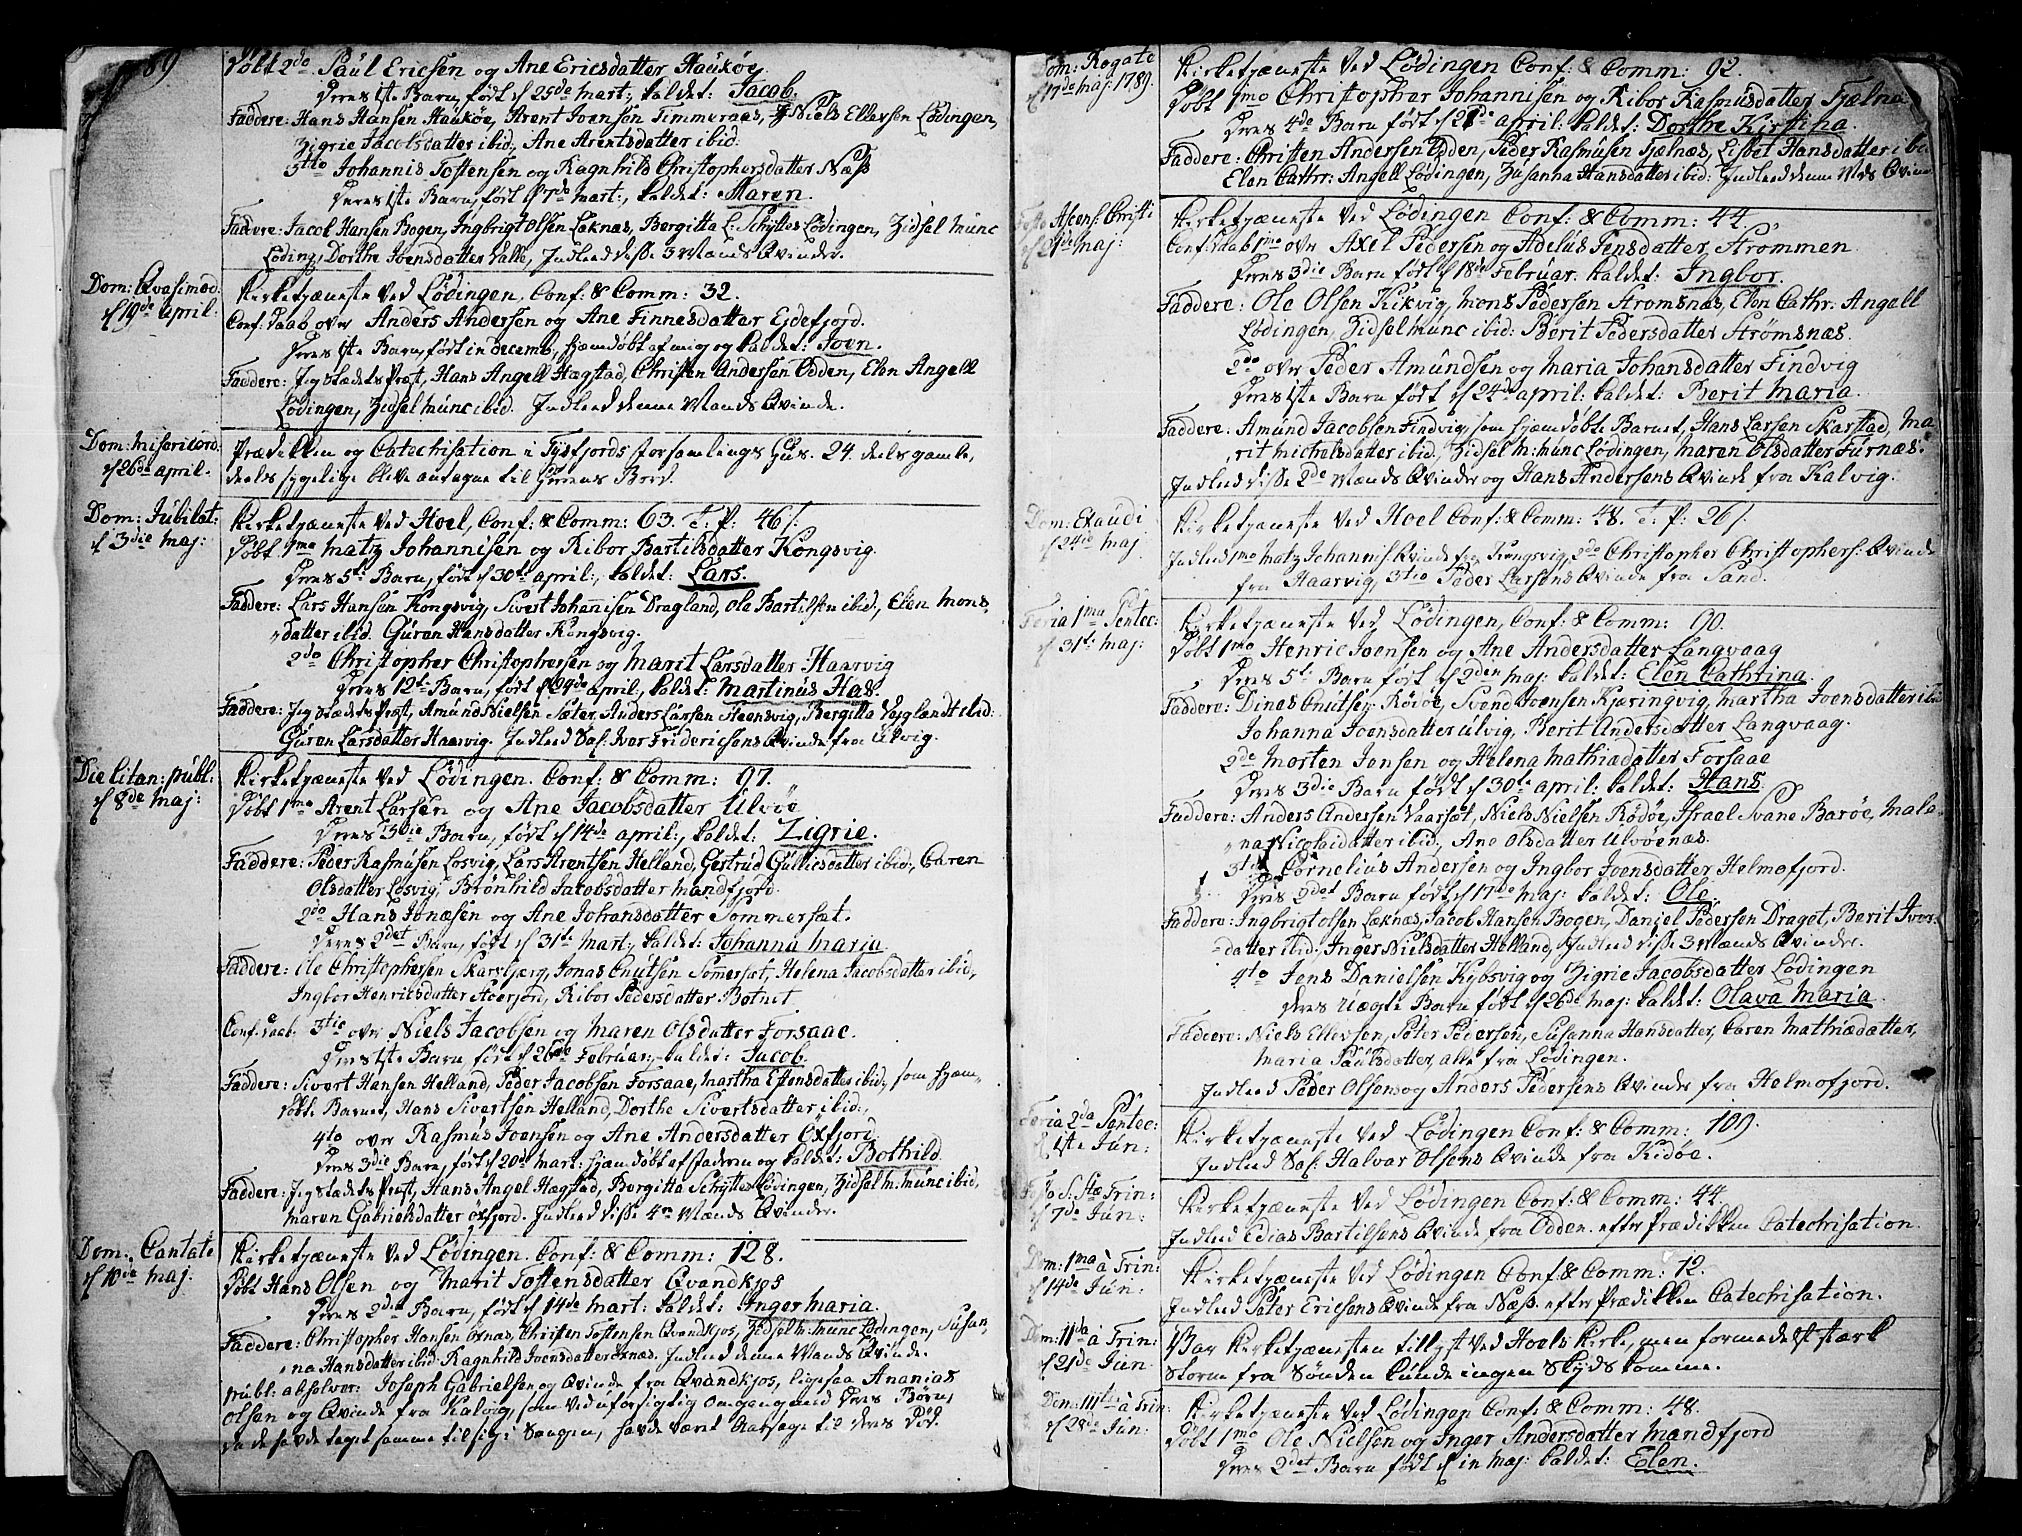 1789
Døbt 2do Paul Ericsen og Ane Ericsdatter Haukøe
Deres 1ste Barn, født d 25de Mart:, kaldet: Jacob.
Faddere: Hans Hansen Haukøe, Arent Joensen Timmernæs, Niels Ellevsen Lødingen,
Zigrie Jacobsdatter ibid, Ane Arentsdatter ibid.
3tio Johannis Toftensen og Ragnhild Christophersdatter Næss
Deres 1ste Barn, født d 7de Mart:, kaldet: Maren.
Faddere: Jacob Hansen Bogen, Ingbrigt Olsen Læknæs, Bergitta L: Schyttes Lødingen, Zidsel Munc
Löding, Dorthe Joensdatter Valle, Indleed disse 3 Mænds Qvinder.
Dom: Qvasimod.
d 19de April:
Kirketjæneste ved Lødingen, Conf: & Comm: 32.
Conf: Daab over Anders Andersen og Ane Finnesdatter Eidefjord.
Deres 1ste Barn, født in Decemb, hjemdøbt af mig og kaldet: Joen.
Faddere: Jeg stædets Præst, Hans Angell Hægstad, Christen Andersen Odden, Elen Angell
Lødingen, Zidsel Munc ibid. Indleed denne Mands Qvinde.
Dom: Misericord
d 26de April.
Prædikken og Catechisation i Tysfjords Forsamlings Huus. 24 deels gamle,
deels sygelige bleve antagne til Herrens Bord.
Dom: Jubilat:
d 3die Maj:
Kirketjæneste ved Hoel, Conf: & Comm: 63. T: P: 46 s.
Døbt 1mo Matz Johannisen og Ribor Bartilsdatter Kongsvig.
Deres 5te Barn, født d 30te April:, kaldet: Lars.
Faddere: Lars Hansen Kongsvig, Sivert Johannisen Dragland, Ole Bartilsen ibid, Elen Mons
datter ibid. Guren Hansdatter Kongsvig.
2do Christopher Christophersen og Marit Larsdatter Haarvig
Deres 12te Barn, født d 27de April, kaldet: Martinus Has.
Faddere: Jeg stædets Præst, Amund Nielsen Sæter, Anders Larsen Steensvig, Bergitta Voglandt ibid:
Guren Larsdatter Haarvig. Indleed Sal: Iver Fridericsens Qvinde fra Ulvig.
Die Litan: publ:
d 8de Maj:
Kirketjæneste ved Lødingen. Conf: & Comm: 97.
Døbt 1mo Arent Larsen og Ane Jacobsdatter Ulvöe
Deres 3die Barn, født d 14de April:, kaldet: Zigrie.
Faddere: Peder Rasmusen Losvig, Lars Arentsen Helland, Gertrud Gullicsdatter ibid, Caren
Olsdatter Losvig, Brønhild Jacobsdatter Mandfjord.
2do Hans Jonæsen og Ane Johansdatter Sommersæt.
Deres 2det Barn, født d 31te Mart:, kaldet: Johanna Maria.
Faddere: Ole Christophersen Skarsbjerg, Jonas Cnutsen Somersæt, Helena Jacobsdatter ibid,
Ingbor Henricsdatter, Ribor Pedersdatter Botnet
Conf: Daab. 3tio over Niels Jacobsen og Maren Olsdatter Forsaae.
Deres 1ste Barn, født d 26de Februar:, kaldet: Jacob.
Faddere: Sivert Hansen Helland, Peder Jacobsen Forsaae, Martha Estensdatter ibid, som hjem-
døbte Barnet, Hans Sivertsen Helland, Dorthe Sivertsdatter ibid:,
4to over Rasmus Joensen og Ane Andersdatter Oxfjord.
Deres 3die Barn, født d 20de Mart: hjemdøbt af Faderen og kaldet: Bothild.
Faddere: Jeg stædets Præst, Hans Angel Hægstad, Bergitta Schyttes Lødingen, Zidsel M: Munc ibid,
Maren Gabrielsdatter Oxfjord. Indleed disse 4re Mænds Qvinder.
Dom: Cantate
d 10de Maj:
Kirketjæneste ved Lødingen. Conf: & Comm: 128.
Døbt Hans Olsen og Marit Toftensdatter Qvandkjos
Deres 2det Barn, født d 14de Mart: kaldet: Inger Maria.
Faddere: Christopher Hansen Ørnæs, Christen Toftensen Qvandkjos, Zidsel M: Munc Lødingen, Susan,
na Hansdatter ibid. Ragnhild Joensdatter Ørnæs. Indleed denne Mands Qvinde.
publ: absolver: Joseph Gabrielsen og Qvinde fra Qvandkjos, ligesaa Ananias
Olsen og Qvinde fra Kalvig, som ved uforsigtig Omgang med deres Børn,
da de havde taget samme til sig i Sengen, havde været Aarsage til deres Død.
Dom: Rogate
d 17de Maj: 1789.
Kirketjæneste ved Lødingen Conf: & Comm: 92.
Døbt 1mo Christopher Johannisen og Ribor Rasmusdatter Tjelnæ
Deres 4de Barn født d 21de April: kaldet: Dorthe Kirstina.
Faddere: Christen Andersen Odden, Peder Rasmusen Tjelnæs, Lisbet Hansdatter ibid
Elen Cathr: Angell Lødingen, Zusanna Hansdatter ibid: Indleed denne Mds Qvinde
Festo Ascens: Christi
d 21de Maj:
Kirketjæneste ved Lødingen Conf: & Comm: 44.
Conf: Daab 1mo over Axel Pedersen og Adelus Jensdatter Strömmen
Deres 3die Barn født d 18de Februar. kaldet: Ingbor.
Faddere: Ole Olsen Kikvig, Mons Pedersen Stromsnæs, Elen Cathr: Angell
Lødingen, Zidsel Munc ibid: Berit Pedersdatter Strömsnæs.
2do over Peder Amundsen og Maria Johansdatter Findvig
Deres 1ste Barn født d 24de April: kaldet: Berit Maria.
Faddere: Amund Jacobsen Findvig, som hjemdøbte Barnet, Hans Larsen Skarstad, Ma
rit Michelsdatter ibid, Zidsel M: Munc Lødingen, Maren Olsdatter Furnæs:
Indleed disse 2de Mænds Qvinder og Hans Andersens Qvinde fra Kalvig.
Dom: Exaudi
d 24de Maj
Kirketjæneste ved Hoel Conf: & Comm: 48. T: P: 26 s.
Indleed 1mo Matz Johannis: Qvinde fra Kongsvig, 2do Christopher Christophers: Qvinde
fra Haarvig, 3tio Peder Larsens Qvinde fra Sand.
Feria 1ma Pentec:
d 31te Maj:
Kirketjæneste ved Lødingen, Conf: & Comm: 90.
Døbt 1mo Henric Joensen og Ane Andersdatter Langvaag
Deres 5te Barn født d 2den Maj: kaldet: Elen Cathrina.
Faddere: Dines Cnutsen Röröe, Svend Joensen Kjeringvig, Martha Joensdatter ibid
Johanna Joensdatter Ulvig, Berit Andersdatter Langvaag.
2do Morten Jensen og Helena Mathiædatter Forsaae
Deres 3die Barn født d 30te April: kaldet: Hans.
Faddere: Anders Andersen Vaarsæt, Niels Nielsen Rödöe, Israel Svane Barøe, Male
na Nicolaidatter ibid, Ane Olsdatter Ulvöenæs.
3tio Cornelius Andersen og Ingbor Joensdatter Helmofjord.
Deres 2det Barn født d 17de Maj: kaldet: Ole.
Faddere: Ingbrigt Olsen Læknæs, Jacob Hansen Bogen, Daniel Pedersen Draget, Berit Iver-
datter ibid: Inger Nielsdatter Helland, Indleed disse 3 Mænds Qvinder.
4to Jens Danielsen Kybsvig og Zigrie Jacobsdatter Lødingen
deres uægte Barn født d 26de Maj: kaldet: Olava Maria.
Faddere: Niels Ellevsen, Peter Pedersen, Susanna Hansdatter, Caren Mathiædatter,
Maria Paulsdatter, alle fra Lødingen.
Indleed Peder Olsens og Anders Pedersens Qvinder fra Helmofjord.
Feria 2da Pentec:
d 1ste Jun:
Kirketjæneste ved Lødingen Conf: & Comm: 109.
Indleed Sal: Halvor Olsens Qvinde fra Kidøe.
Festo S: Stæ Trin:
d 7de Jun:
Kirketjæneste ved Lødingen Conf: & Comm: 44.
Indleed Edias Bartilsens Qvinde fra Odden. efter Prædikken Catechisation.
Dom: 1ma à Trin:
d 14de Jun:
Kirketjæneste ved Lødingen Conf: & Comm: 12.
Indleed Peter Ericsens Qvinde fra Næss. efter Prædikken Catechisation.
Dom: 11da à Trin:
d 21de Jun:
Var Kirketjenesten tillyst ved Hoels Kirke, men formedelst stærk
Storm fra Sønden kunde ingen Skyds komme.
Dom: 111tia à Trin:
d 28de Jun:
Kirketjæneste ved Lødingen Conf: & Comm: 48.
Døbt 1mo Ole Nielsen og Inger Andersdatter Mandfjord
Deres 2det Barn født d in Maj: kaldet: Elen.